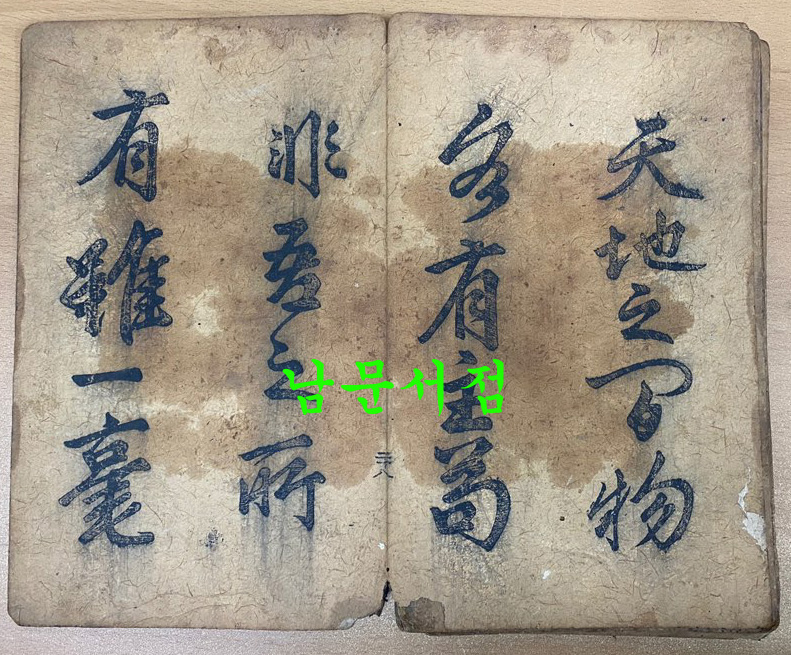 天地之間物
各有主苟
非吾之所
有雖一毫
남문서점